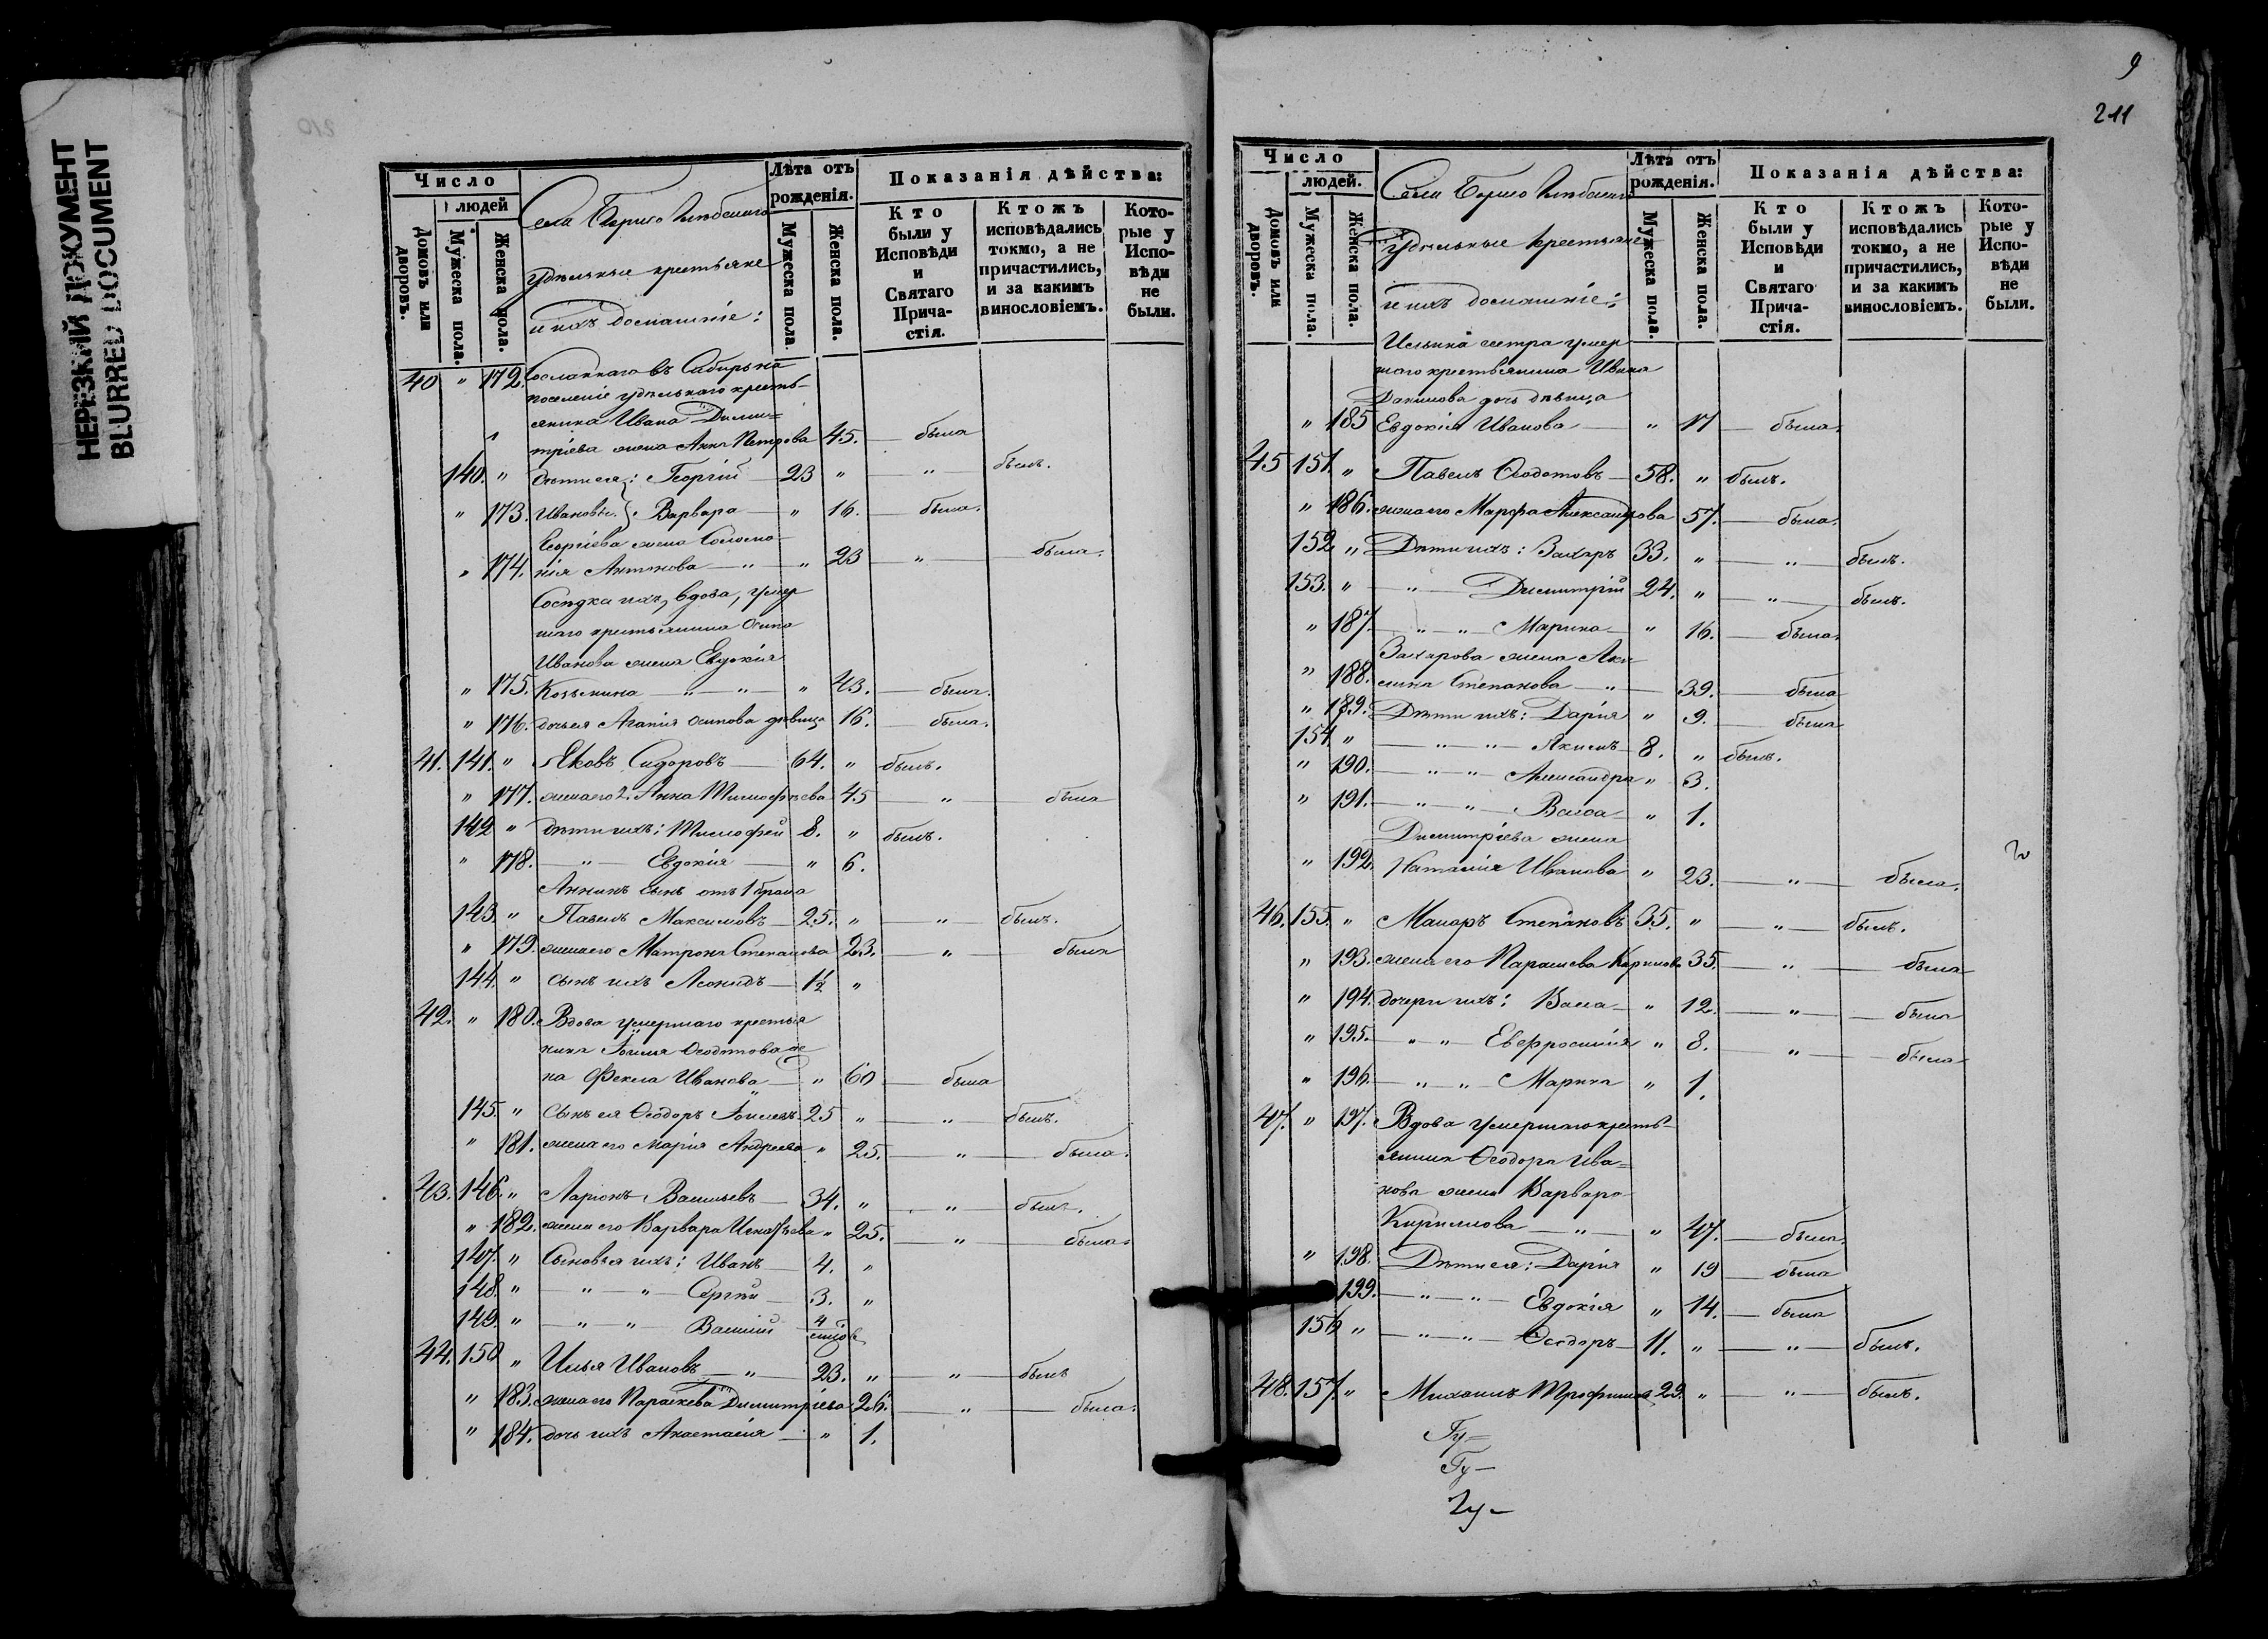 НЕРЕЗКИЙ ДОКУМЕНТ
BLURRED DOCUMENT
Число
людей
Домовъ или дворовъ.
Мужеска пола.
Женска пола.
Села Борисо Глѣбскаго
удѣльные крестьяне
и ихъ домашніе:
Лѣта отъ рожденія.
Мужеска пола.
Женска пола.
Показанія дѣйства:
Кто были у Исповѣди и Святаго Прича-стія.
Ктожъ исповѣдались токмо, а не причастились, и за какимъ винословіемъ.
Кото-рые у Испо-вѣди не были.
40 " 172. Сосланнаго въ Сибирь на
поселеніе удѣльнаго кресть-
янина Ивана Дими=
тріева жена Анна Петрова 45. — была
140. " Дѣти ея: Георгій — 23 " — " — былъ.
" 173. Ивановы: Варвара — " 16. — была.
Георгіева жена Соломо-
" 174. нія Антонова — " — " 23 — " — была.
Сосѣдка ихъ, вдова, умер
шаго крестьянина Осипа
Иванова жена Евдокія
" 175. Козьмина — " — " — " 43. — была.
" 176. дочь ея Агапія Осипова дѣвица 16. — была.
41. 141. " Яковъ Сидоровъ — 64. " былъ.
" 177. жена его 2. Анна Тимофѣева 45 — " — была
142 " дѣти ихъ: Тимофей 8. " былъ.
" 178. — " — Евдокія — " 6.
Аннинъ сынъ отъ 1 брака
143. " Павелъ Максимовъ — 25. " — " — былъ.
" 179. жена его Матрона Степанова 23. — " — была
144. " сынъ ихъ Леонидъ — 1½ "
42. " 180. Вдова умершаго крестья
нина Өеодотова же
на Ѳекла Иванова — " 60 — была
145. " Сынъ ея Ѳеодоръ 25 " — " — былъ.
" 181. жена его Марія Андреева " 25. — " — была.
43. 146. " Ларіонъ Васильевъ — 34. " — " — былъ.
" 182. жена его Варвара Игнатьева " 25. — " — была.
147. " Сыновья ихъ: Иванъ — 4. "
148. " — " — " — Сергѣй — 3. "
149. " — " — " — Василій 4
44. 150 " Илья Ивановъ — " — 23. " — " — былъ
" 183. жена его Параскева Димитріева 26. — " — была.
" 184. дочь ихъ Анастасія — " 1.
9
211
Число
людей.
Домовъ или дворовъ.
Мужеска пола.
Женска пола.
Села Борисо Глѣбскаго
Удѣльные крестьяне
и ихъ домашніе:
Лѣта отъ рожденія.
Мужеска пола.
Женска пола.
Показанія дѣйства:
Кто были у Исповѣди и Святаго Прича-стія.
Ктожъ исповѣдались токмо, а не причастились, и за какимъ винословіемъ.
Кото-рые у Испо-вѣди не были.
Ильина сестра умер
шаго крестьянина Ивана
Данилова дочь дѣвица
" 185 Евдокія Иванова — " 17 — была.
45 151. " Павелъ Ѳеодотовъ — 58. " былъ.
" 186. жена его Марфа Александрова 57. — была.
152 " Дѣти ихъ: Захаръ 33. " — " — былъ.
153. " — " — Димитрій 24. " — " — былъ.
" 187. — " — " — Марина — " 16. — была.
Захарова жена Аку-
" 188. лина Степанова — " — 39. — была
" 189. Дѣти ихъ: Дарія " 9. — была
154 " — " — " — Якимъ — 8. " былъ.
" 190. — " — " — Александра " 3.
" 191. — " — " — Васса — " 1.
Димитріева жена
" 192. Наталія Иванова " 23. — " — была.
46. 155. " Макаръ Степановъ 35. " — " — былъ.
" 193. жена его Параскева Карпова 35. — " — была
" 194. дочери ихъ: Васса — " 12. — " — была
" 195. — " " — Евфросинія " 8. — " — была
" 196. — " — " — Марина " 1.
47. " 197. Вдова умершаго кресть=
янина Ѳеодора Ива=
нова жена Варвара
Кирилова — " — " 47. — была.
" 198. Дѣти ея: Дарія " 19 — была
199. — " — " — Евдокія " 14. — была
156 " — " — " — Ѳеодоръ — 11. " — " — былъ.
48. 157. " Михаилъ Трофимовъ 29. " — " — былъ.